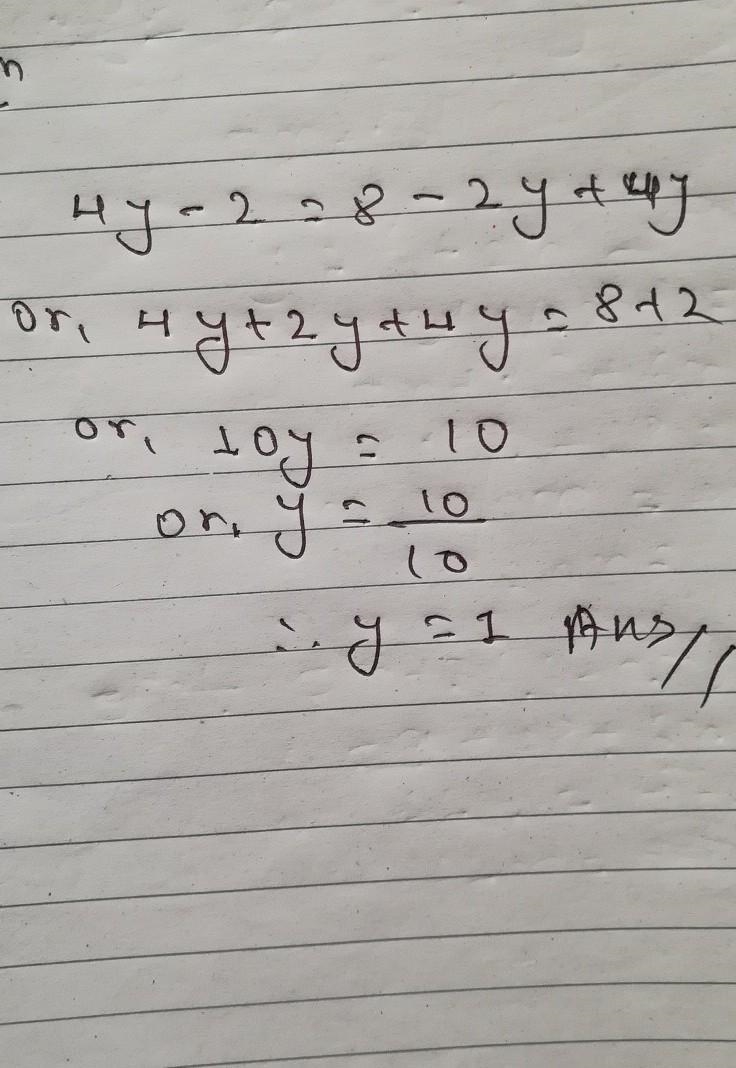 n
4y - 2 = 8 - 2y + 4y
or, 4y + 2y + 4y = 8 + 2
or, 10y = 10
or, y = 10/10
∴ y = 1 Ans//